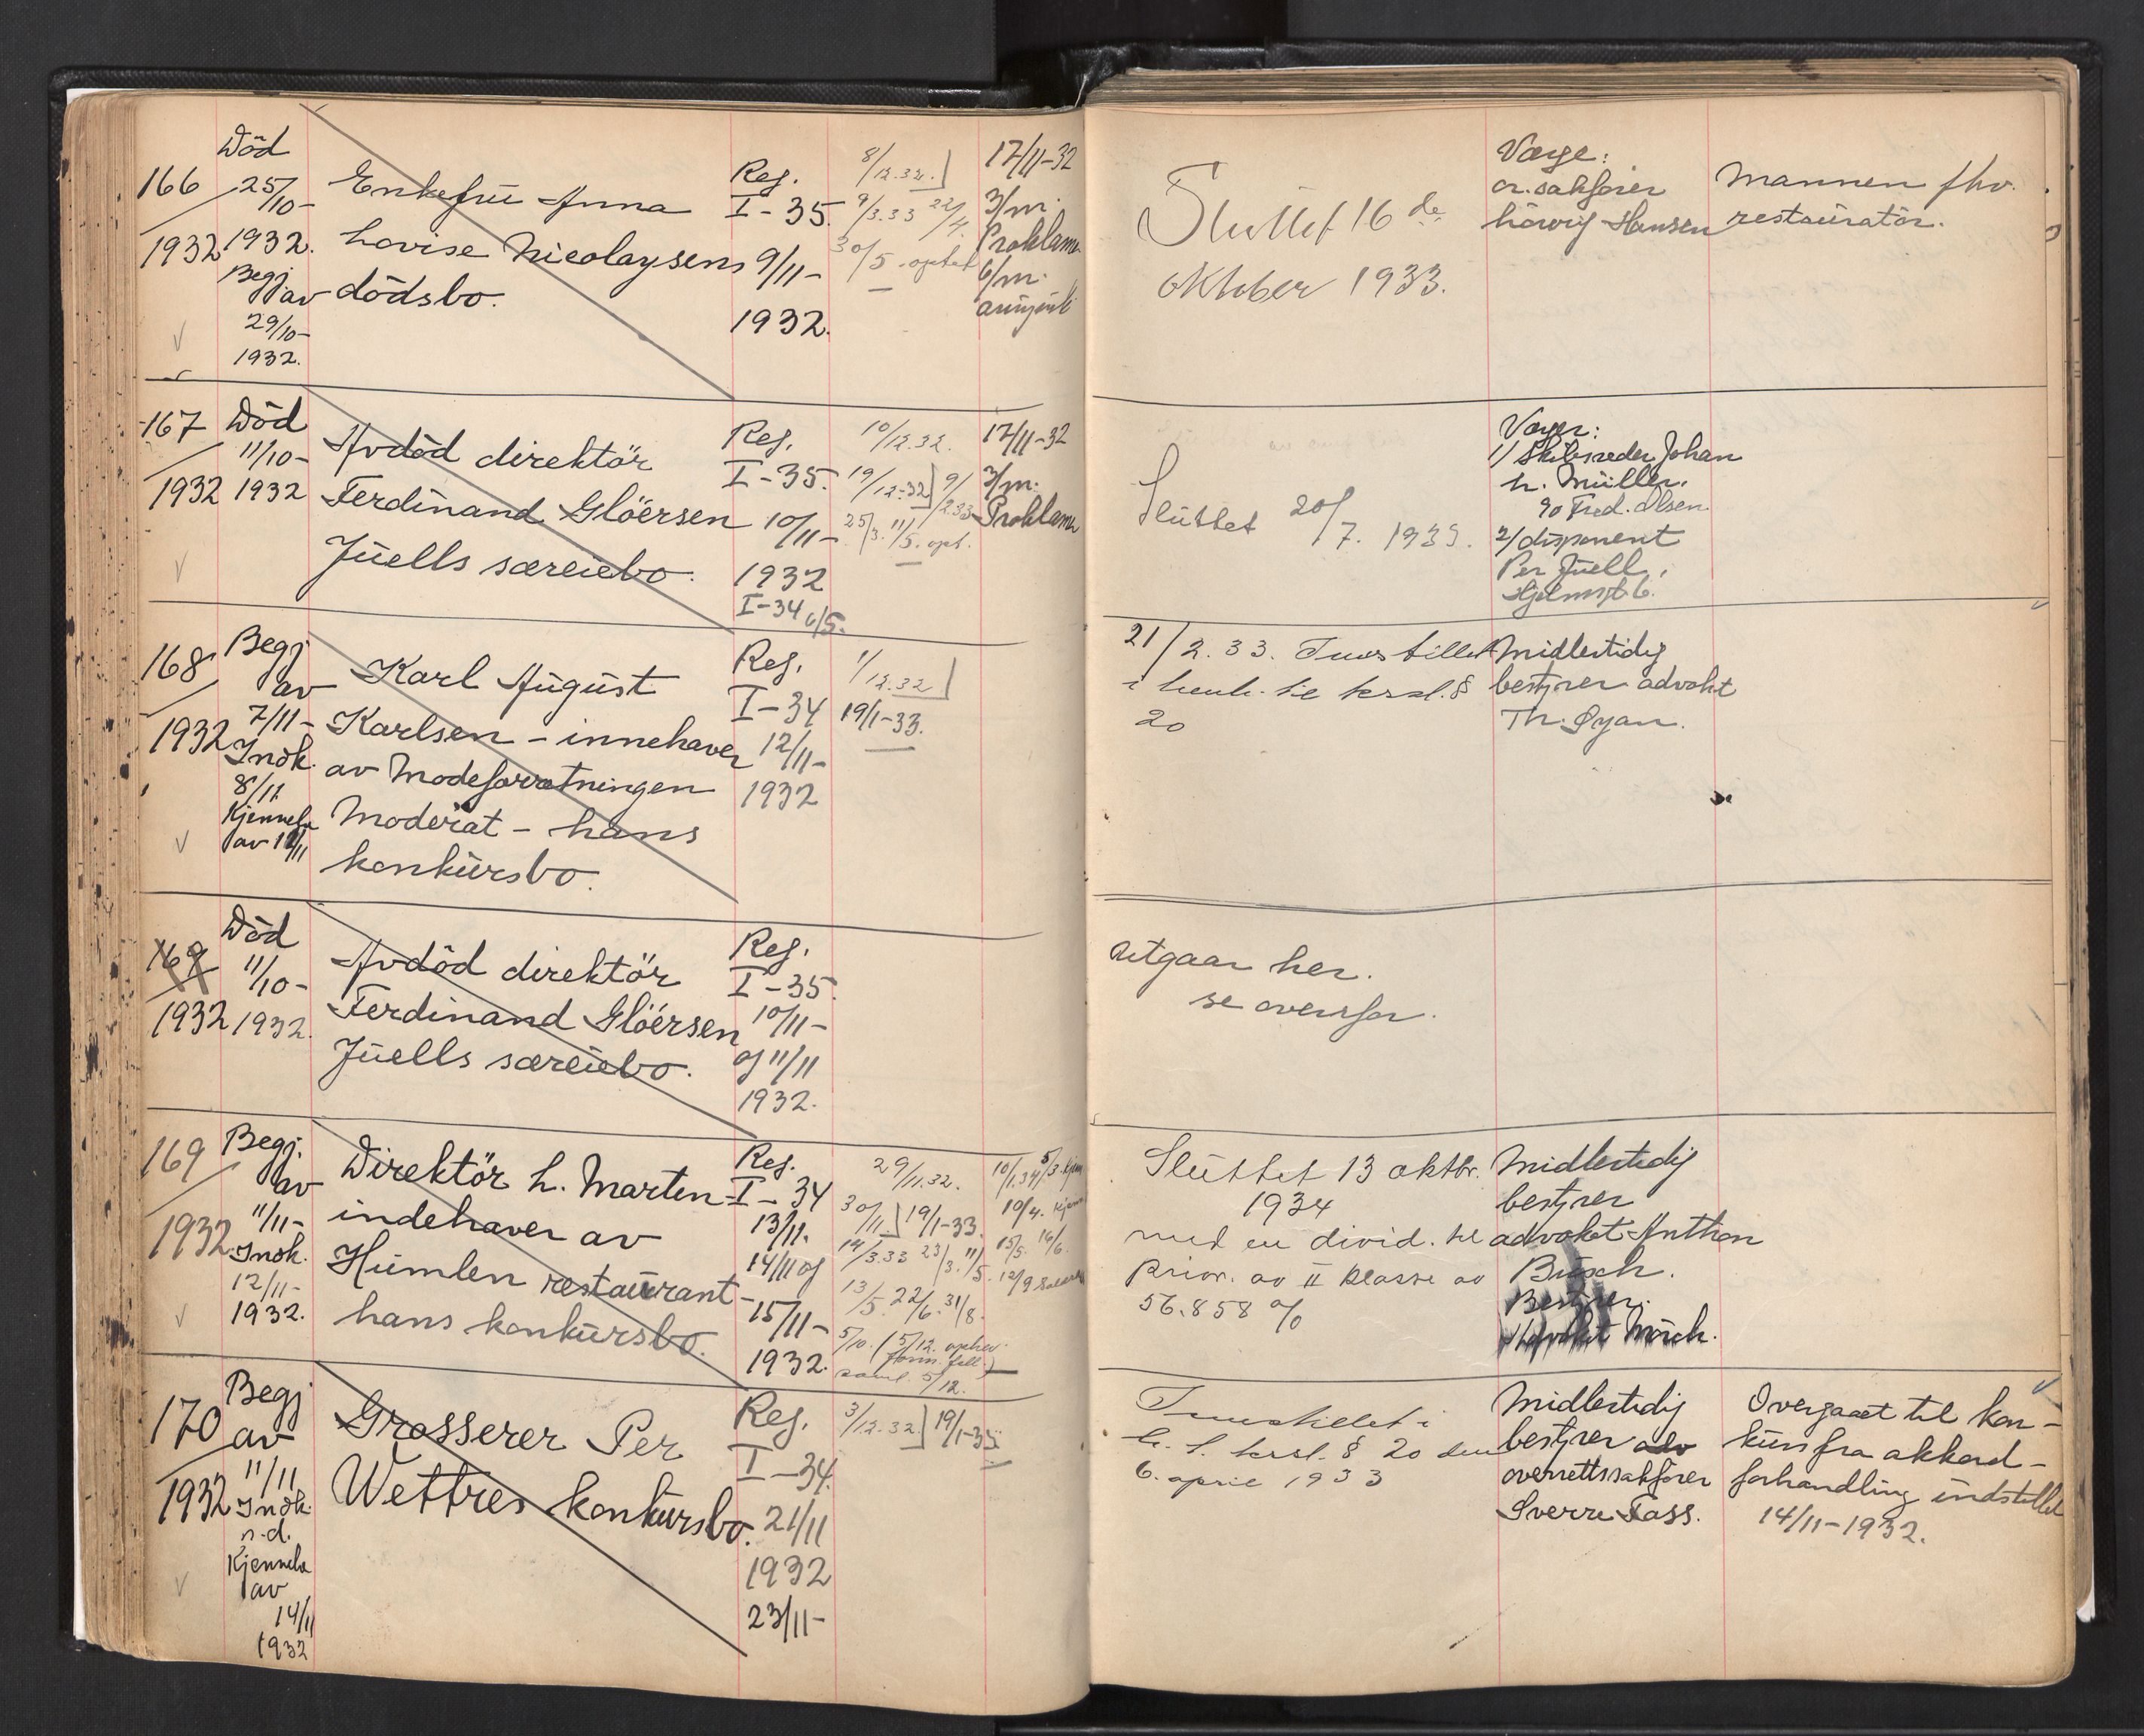 166
1932
Död
25/10-
1932.
Begj
av
29/10-
1932.
Enkefru Anna
Lovise Nicolaysens
dödsbo.
Reg.
I-35.
9/11-
1932.
8/12.32.
9/3.33 22/4.
30/5.
17/11-32
3/m.
Proklama
6/m.
Sluttet 16 de
oktober 1933.
Værge:
o.r.sakfører
Hansen
Mannen fhv.
restauratör.
167
1932
Död
11/10-
1932
Avdöd direktör
Ferdinand Glöersen
Juells særeiebo.
Reg.
I-35.
10/11-
1932
I-34 6/5.
10/12.32.
19/12-32 9/2.33
25/3. 11/5. opt.
17/11-32
3/m.
Proklama
Sluttet 20/7. 1933.
Værger:
1/ Skibsreder Johan
H. Müller,
% Fred. Olsen
2/ disponent
Per Juell,
168
1932
Begj
av
7/11-
Innk.
8/11.
Kjennelse
av 12/11
Karl August
Karlsen - innehaver
av Modeforretningen
Moderat - hans
konkursbo.
Reg.
I-34
12/11-
1932
1/12.32
19/1-33.
21/2.33. Innstillet
i henh. til krsl. §
20
Midlertidig
bestyrer advokat
Th. Øyan.
169
1932
Död
11/10-
1932.
Avdöd direktör
Ferdinand Glöersen
Juells særeiebo.
Reg.
I-35
10/11-
og 11/11
1932.
Utgaar her.
se ovenfor.
169
1932
Begj.
av
11/11-
Innk.
12/11-
1932.
Direktör H. Marten
indehaver av
Humlen restaurant-
hans konkursbo.
Reg.
I-34
13/11.
14/11 og
15/11-
1932.
29/11.32.
30/11 19/1-33.
14/3.33 23/3. 11/5.
13/5. 22/6. 31/8.
5/10. (5/12.
5/12.
10/1.34
10/4.
15/5. 16/6.
12/9
Sluttet 13 oktbr.
1934
med en divid. til
prior. av II klasse av
56.858 %
Midlertidig
bestyrer
advokat Anthon
Busch.
Bestyrer:
Advokat Mörch.
170
1932
Begj
av
11/11
Innk.
s.d.
Kjennelse
av
14/11
1932
Grosserer Per
Wettres konkursbo.
Reg.
I-34.
21/11
1932
23/11-
3/12.32. 19/1-33.
Innstillet i
h. t. krsl. § 20 den
6. april 1933
Midlertidig
bestyrer
overrettssakfører
Sverre Fass.
Overgaaet til kon-
kurs fra akkord-
forhandling indstillet
14/11-1932.